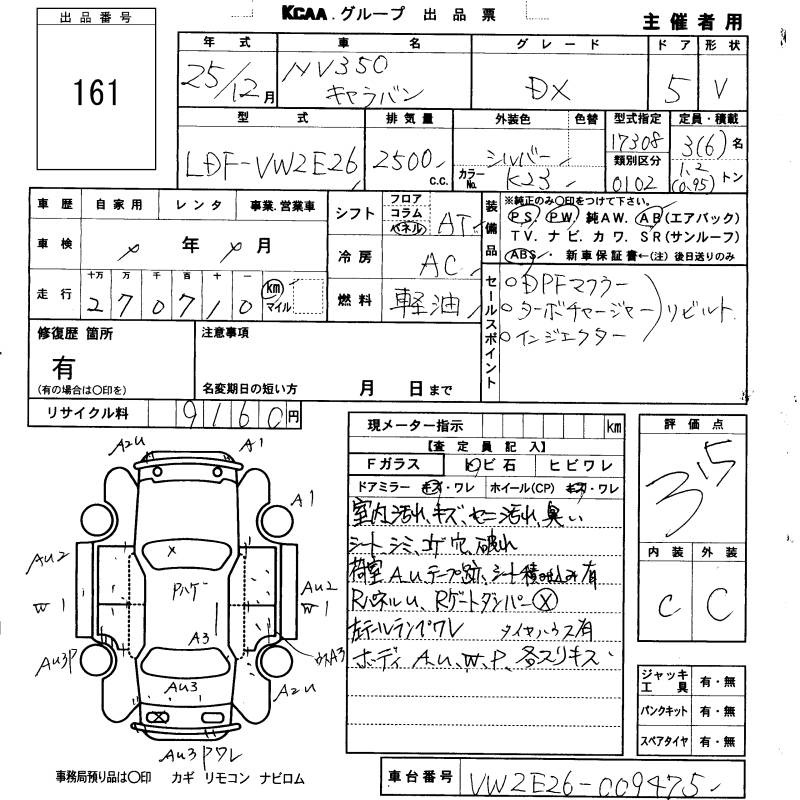 出品番号
161
KCAA.グループ 出品票
主催者用
年式 車名 グレード ドア 形状
25/12月 NV350 キャラバン DX 5 V
型式 排気量 外装色 色替 型式指定 定員・積載
LDF-VW2E26 2500 c.c. シルバー カラーNo. K23 17308 3(6)名
類別区分 0102 1.2 (0.95) トン
車歴 自家用 レンタ 事業.営業車
車検 × 年 × 月
走行 十万 万 千 百 十 一
270710 km マイル
シフト フロア コラム パネル AT
冷房 AC
燃料 軽油
装備品 ※純正のみ○印をつけて下さい。
PS. PW. 純AW. AB(エアバック)
TV. ナビ. カワ. SR(サンルーフ)
ABS. 新車保証書←(注)後日送りのみ
セールスポイント
○DPFマフラー
○ターボチャージャー リビルト
○インジェクター
修復歴 箇所
有
(有の場合は○印を)
注意事項
名変期日の短い方 月 日まで
リサイクル料 9160円
現メーター指示 km
【査定員記入】
Fガラス トビ石 ヒビワレ
ドアミラー キズ・ワレ ホイール(CP) キズ・ワレ
室内汚れ、キズ、セニ汚れ、臭い
シート、シミ、コゲ穴、破れ
荷室AUテープ跡、シート積み込み有
RパネルU、RゲートダンパーX
左テールランプワレ タイヤハウス有
ボディAU、W、P、各スリキズ
評価点
3.5
内装 外装
C C
ジャッキ 工具 有・無
パンクキット 有・無
スペアタイヤ 有・無
A2U A1
A1
AU2
W1
AU3P
×
Pハゲ
A3
AU3
×
AU2
W1
A3
A2U
AU3Pワレ
事務局預り品は○印 カギ リモコン ナビロム
車台番号 VW2E26-009475